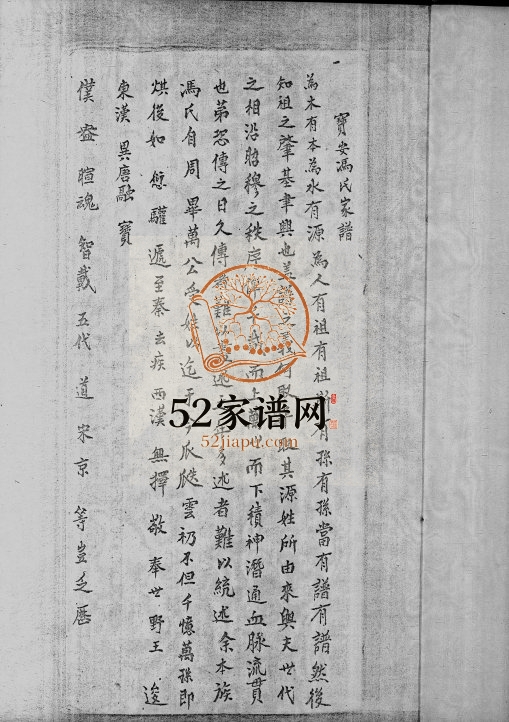 寶安馮氏家譜
為木有本為水有源為人有祖有祖 有孫有孫當有譜有譜然後
知祖之肇基聿興也 其源姓所由來與夫世代
之相沿昭穆之秩序 而上 而下積神潛通血脉流貫
也第恐傳之日久傳 難以 述 述者難以統述余本族
馮氏自周畢萬公受姓以迄于 瓜瓞雲礽不但千億萬孫即
烘後如 驩遞至秦去疾西漢無擇敬奉世野王逡
東漢異唐融寳
僕 暄魂智戴五代道宋京等豈乏曆
52家谱网
52jiapu.com